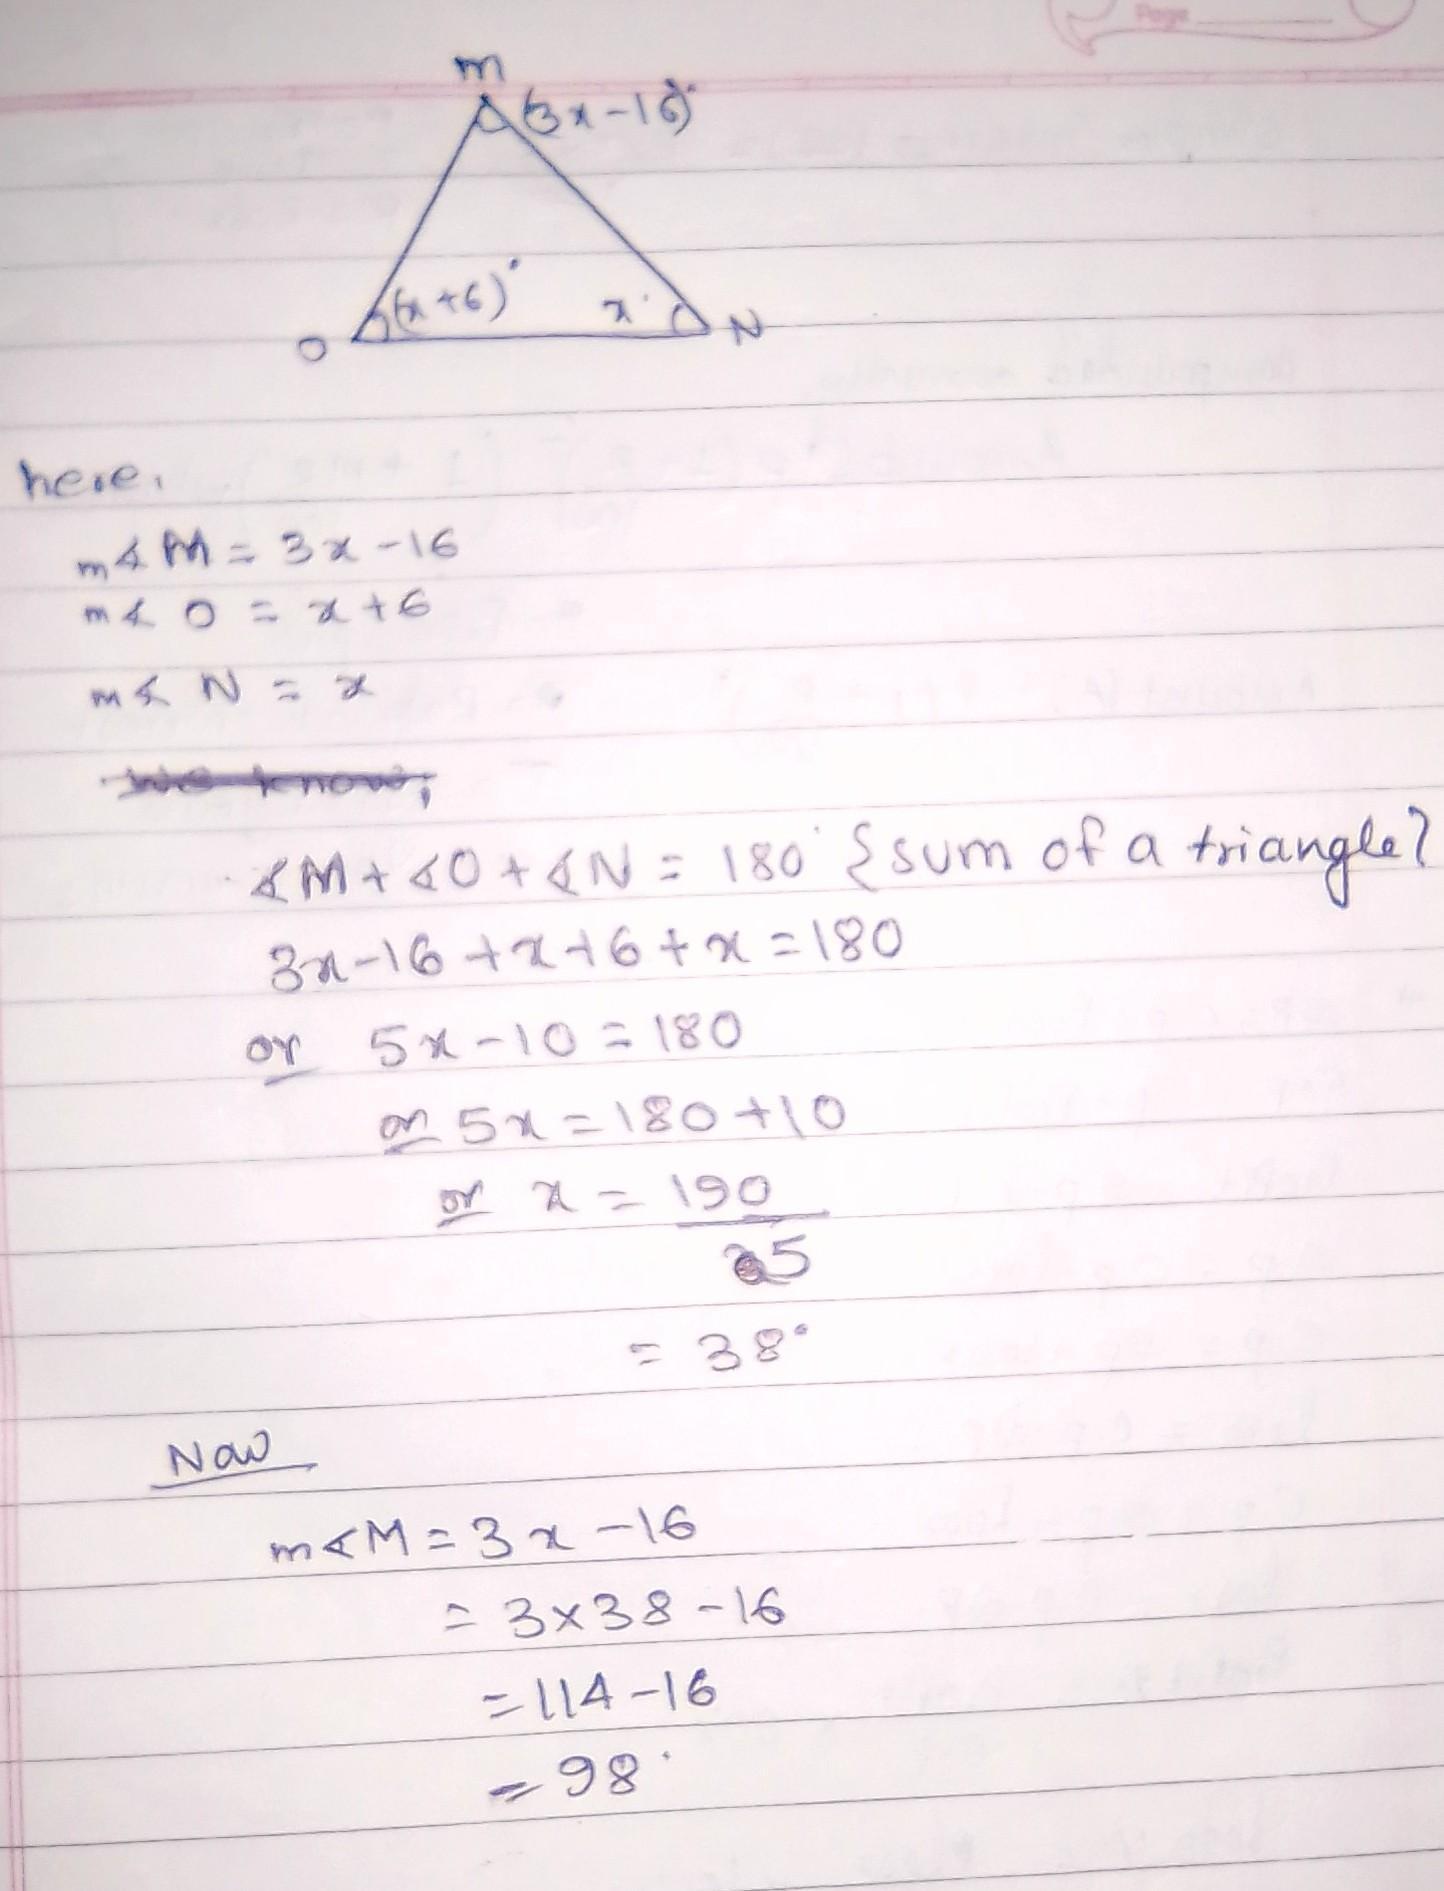 Page
m
(3x-16)°
(x+6)°
x°
O
N
here,
m∡M = 3x-16
m∡O = x+6
m∡N = x
We know,
∡M + ∡O + ∡N = 180° {sum of a triangle}
3x-16+x+6+x=180
or 5x-10 = 180
or 5x = 180+10
or x = 190
5
= 38°
Now
m∡M = 3x-16
= 3x38-16
= 114-16
= 98°